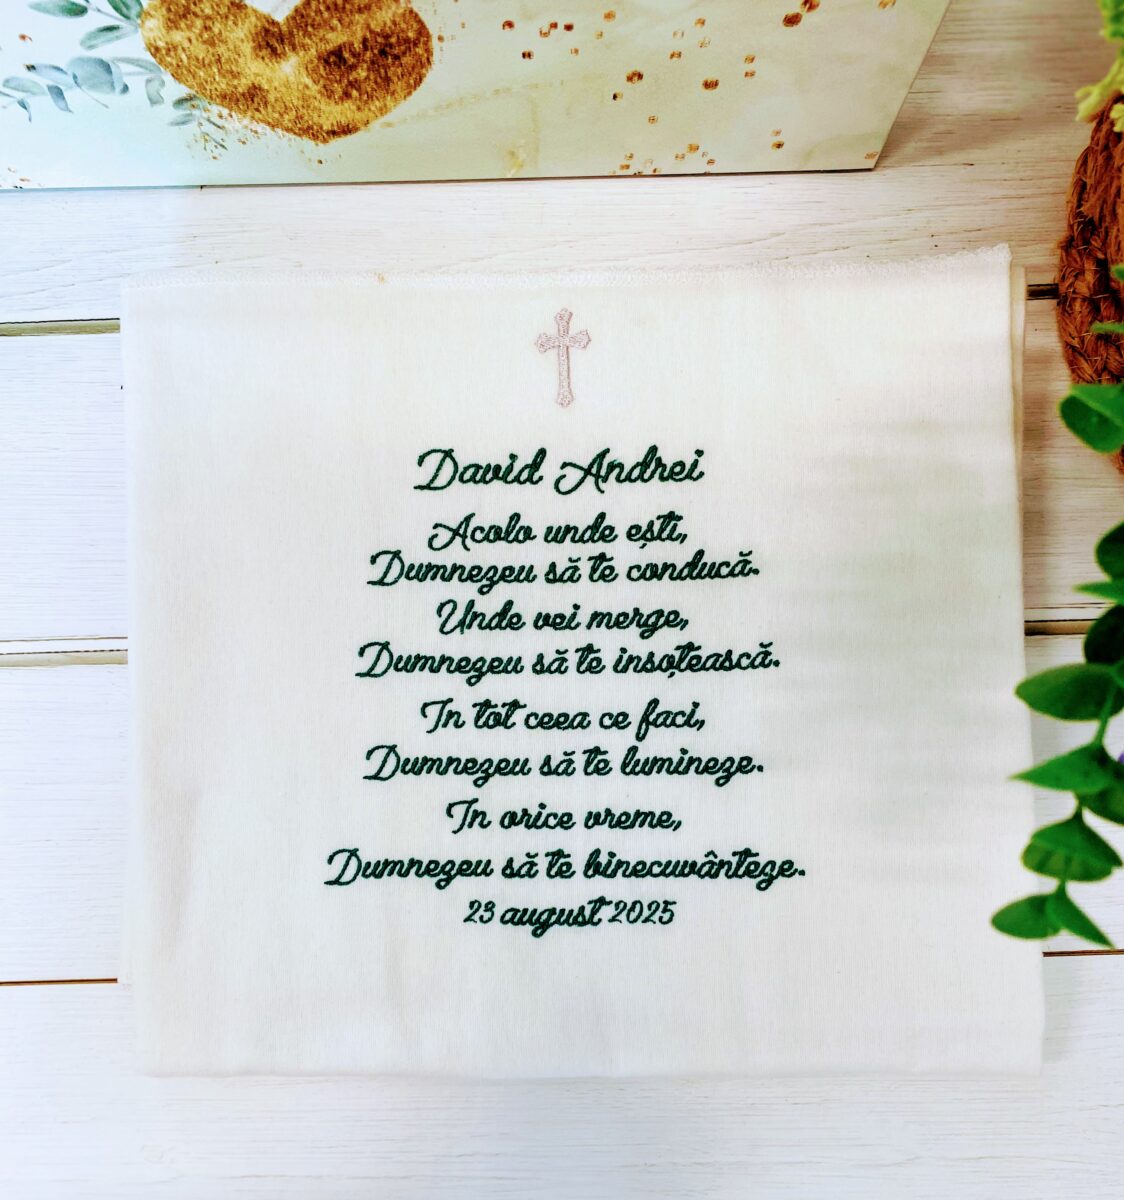 David Andrei
Acolo unde ești,
Dumnezeu să te conducă.
Unde vei merge,
Dumnezeu să te insoțească.
In tot ceea ce faci,
Dumnezeu să te lumineze.
In orice vreme,
Dumnezeu să te binecuvânteze.
23 august 2025